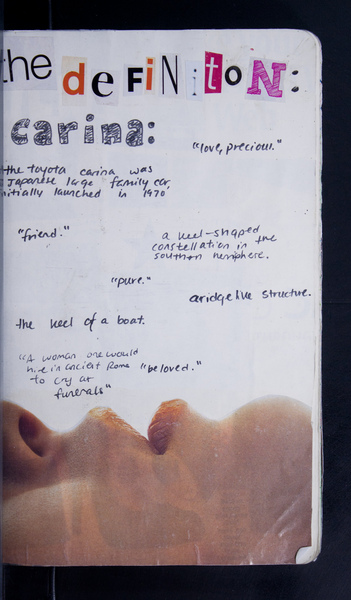 the deFiNitoN:
carina:
"love, precious."
the toyota carina was
a Japanese large family car
initially launched in 1970,
"friend."
a keel-shaped
constellation in the
southern hemiphere.
"pure."
a ridge like structure.
the keel of a boat.
"A woman one would
hire in ancient Rome
to cry at
funerals"
"beloved."